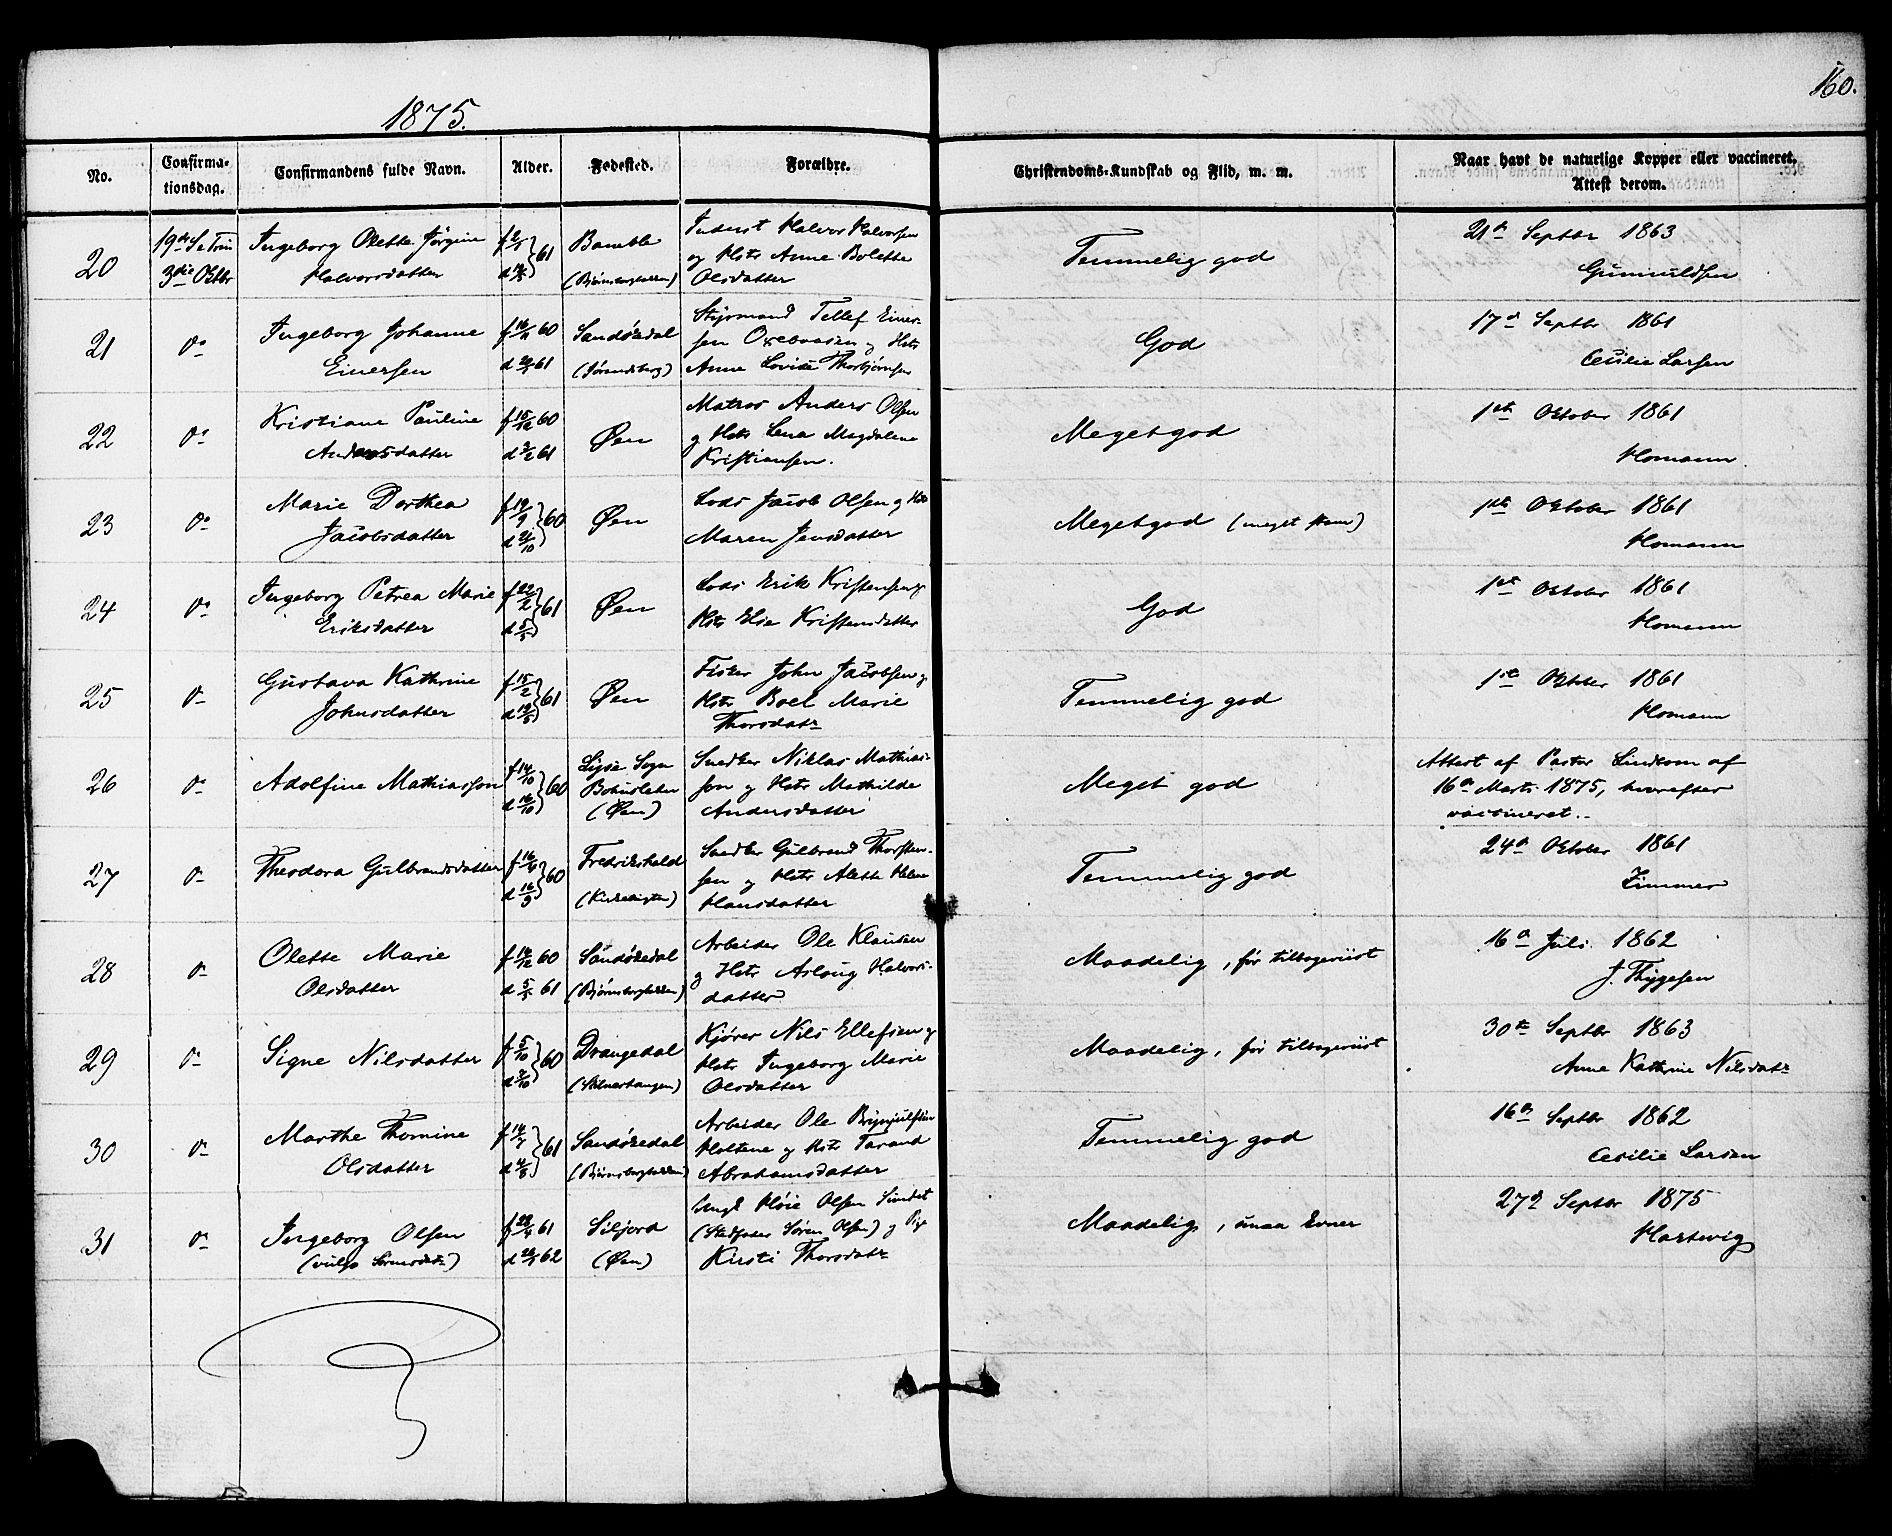 1875.
160.
No.
Confirma-
tionsdag.
Confirmandens fulde Navn.
Alder.
Fødested.
Forældre.
Christendoms-Kundskab og Flid, m. m.
Naar havt de naturlige Kopper eller vaccineret.
Attest derom.
20
19de S. e. Trin
3die Oktbr
Ingeborg Olette Jørgine
Halvorsdatter
61
Bamble
(Bjørnsborgkilen)
Inderst Halvor Halvorsen
og Hstr Anne Bolette
Olsdatter
Temmelig god
21de Septbr 1863
Gunnuldsen
21
do
Ingeborg Johanne
Einersen
60
61
Sandøkedal
Styrmand Tellef Einer-
sen og Hstr
Anne Lovise Thorbjørnsen
God
17de Septbr 1861
Cecilie Larsen
22
do
Kristiane Pauline
Andersdatter
f 15/12 60
d 3/2 61
Øen
Matros Anders Olsen
og Hstr Lena Magdalene
Kristiansen.
Meget god
1ste Oktober 1861
Homann
23
do
Marie Dorthea
Jacobsdatter
f 19/9
d 21/10 60
Øen
Lods Jacob Olsen og Hstr
Maren Jensdatter
Meget god (meget svag)
1ste Oktober 1861
Homann
24
do
Ingeborg Petrea Marie
Eriksdatter
f 22/2
d 5/5 61
Øen
Lods Erik Kristensen og
Hstr Else Kristensdatter
God
1ste Oktober 1861
Homann
25
do
Gustava Kathrine
Johnsdatter
f 15/2
d 19/5 61
Øen
Fisker John Jacobsen og
Hstr Boel Marie
Thorsdatr
Temmelig god
1ste Oktober 1861
Homann
26
do
Adolfine Mathiasson
f 14/10
d 16/10 60
Lyse Sogn
Bohuslehn
(Øen)
Snedker Niklas Mathias-
son og Hstr Mathilde
Andersdatter
Meget god
Attest af Pastor Lindbom af
16de Marts 1875, herefter
vaccineret.
27
do
Theodora Gulbrandsdatter
60
Fredrikshald
(Kirkebugten)
Snedker Gulbrand Thorsten-
sen og Hstr Alette Helene
Hansdatter
Temmelig god
24de Oktober 1861
Zimmer
28
do
Olette Marie
Olsdatter
60
61
Sandøkedal
(Bjørnsborgkilen)
Arbeider Ole Klausen
og Hstr Aslaug Halvors-
datter
Maadelig, før tilbageviist
16de Juli 1862
J. Thygesen
29
do
Signe Nilsdatter
f 5/10
60
Drangedal
Kjører Nils Ellefsen og
Hstr Ingeborg Marie
Olsdatter
Maadelig, før tilbageviist
30te Septbr 1863
Anne Kathrine Nilsdatr
30
do
Marthe Thomine
Olsdatter
61
Sandøkedal
(Bjørnsborgkilen)
Arbeider Ole Brynjulfsen
Holtene og Hstr Tarand
Abrahamsdatter
Temmelig god
16de Septbr 1862
Cecilie Larsen
31
do
Ingeborg Olsen
61
62
Siljord
(Øen)
Ungk Høie Olsen Sundet
(Stedfader Søren Olsen) og Pige
Kirsti Thorsdatr
Maadelig, smaa Evner
27de Septbr 1875
Hartwig